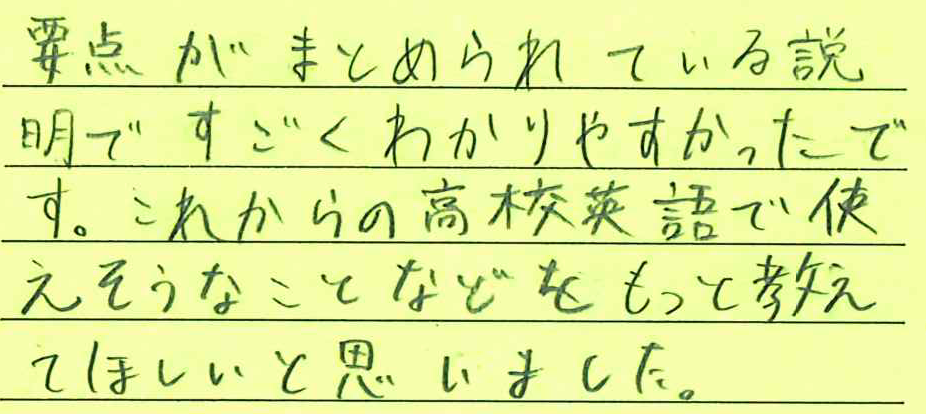 要点がまとめられている説
明ですごくわかりやすかったで
す。これからの高校英語で使
えそうなことなどをもっと教え
てほしいと思いました。